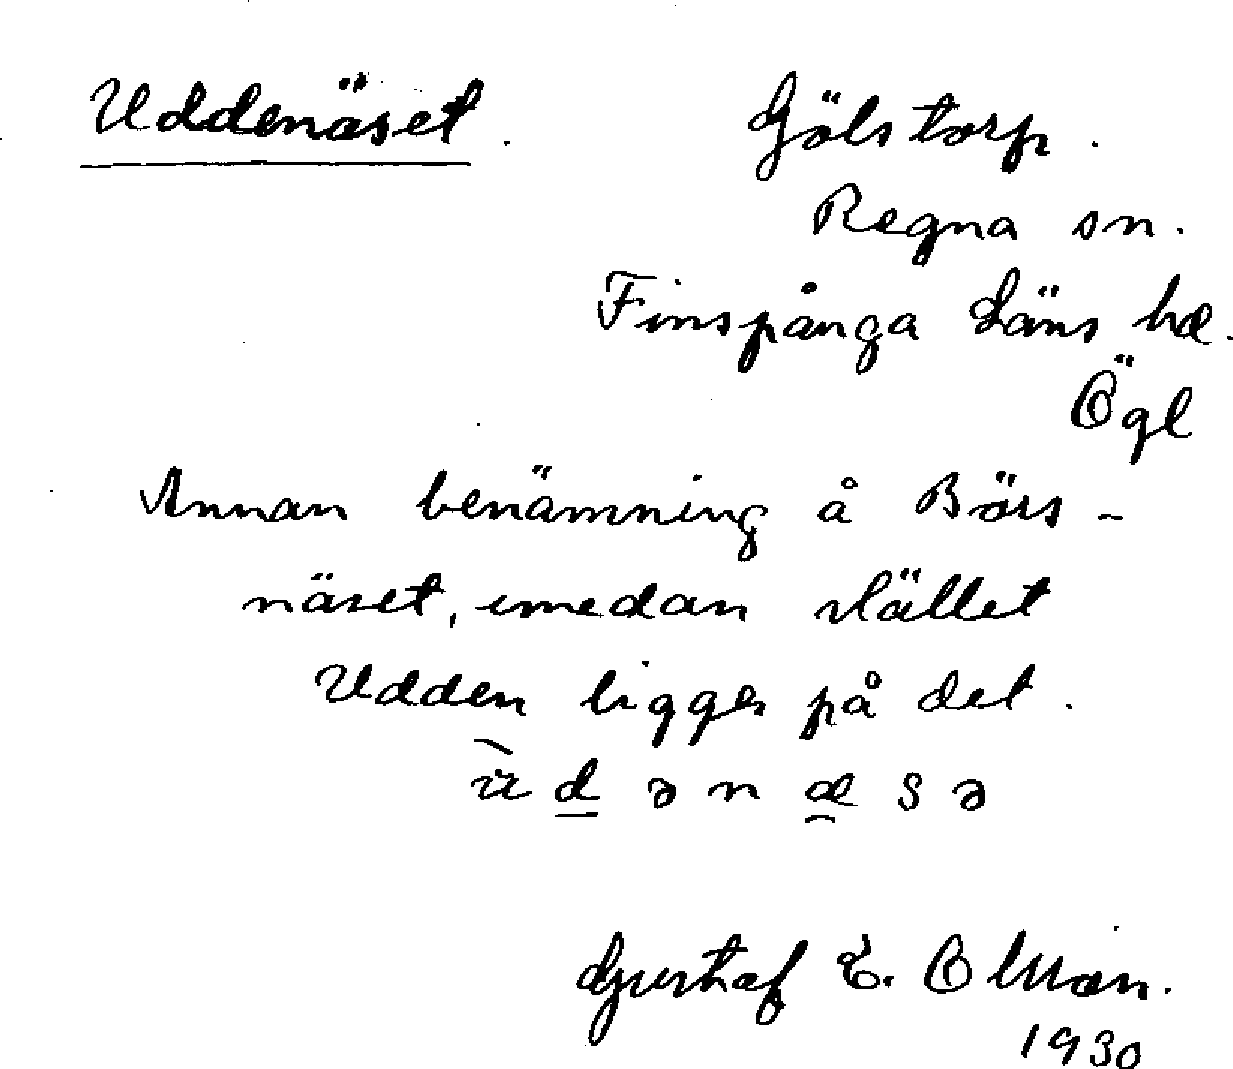 Uddenäset.
Gölstorp.
Regna sn.
Finspånga Läns hd.
Ögl
Annan benämning å Börs-
näset, emedan stället
Udden ligger på det.
Gustaf E. Olsson.
1930